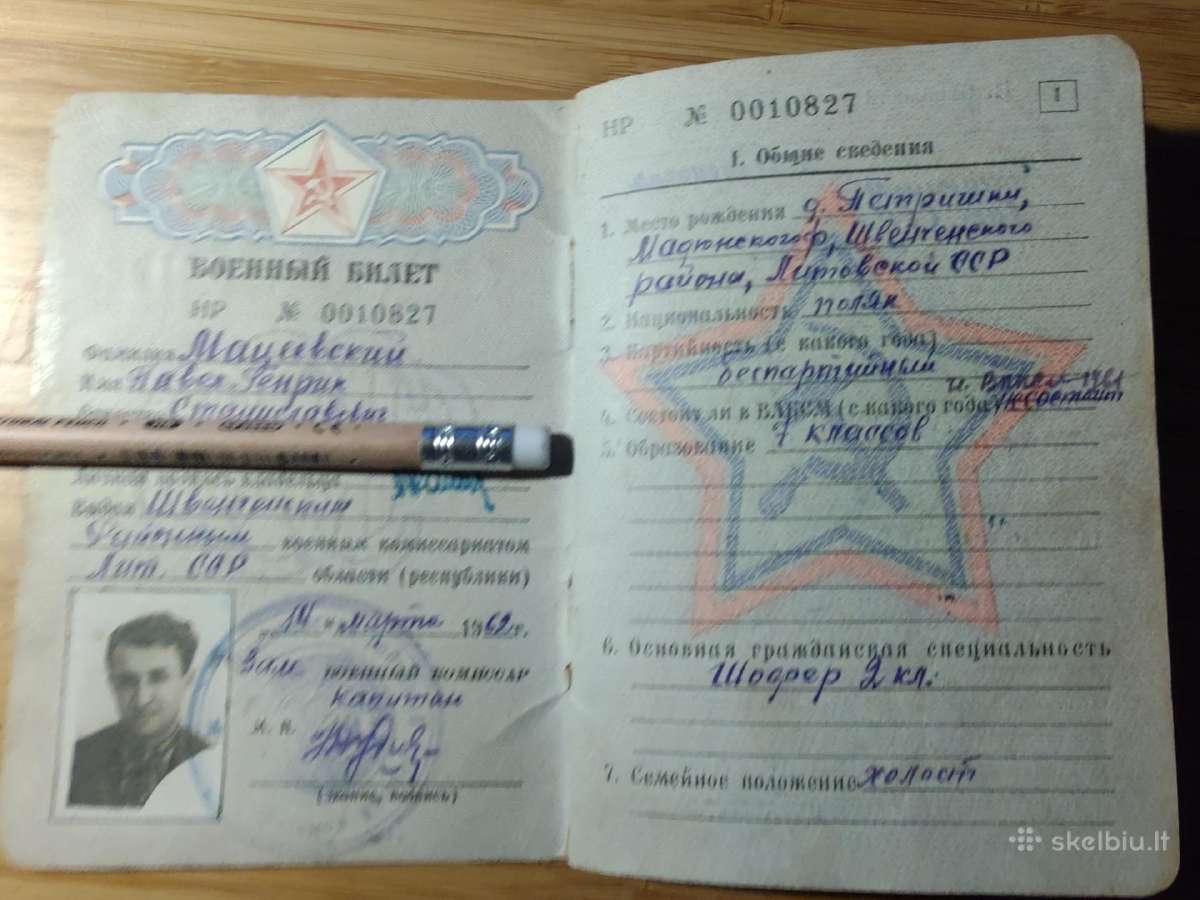 ВОЕННЫЙ БИЛЕТ
НР № 0010827
Фамилия Мацеевский
Имя Павел-Генрик
Станиславович
Личная подпись владельца
Выдан Швенченским
Районным военным комиссариатом
Лит. ССР области (республики)
„14“ марта 1962 г.
Зам. ВОЕННЫЙ КОМИССАР
капитан
М. П.
(звание, подпись)
НР № 0010827
1
I. Общие сведения
1. Место рождения д. Петришки,
Мадюнского ф, Швенченского
района, Литовской ССР
2. Национальность поляк
3. Партийность (с какого года)
беспартийный
4. Состоит ли в ВЛКСМ (с какого года) не состоит
5. Образование 7 классов
6. Основная гражданская специальность
Шофер 2 кл.
7. Семейное положение холост
skelbiu.lt